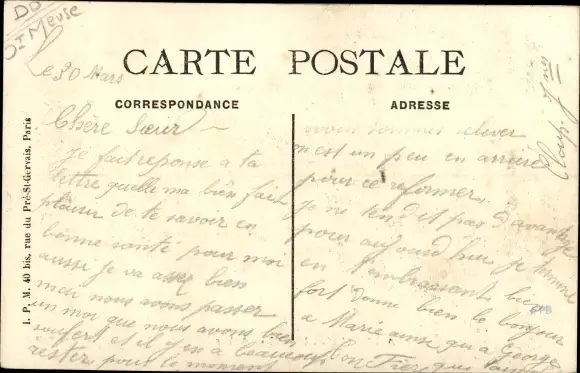 DD
Dt Meuse
CARTE POSTALE
CORRESPONDANCE
ADRESSE
I. P. M. 40 bis, rue du Pré-St-Gervais, Paris
Le 30 Mars
Chère Sœur
Je fait reponse a ta
lettre quelle ma bien fait
plaisir de te savoir en
bonne santé pour moi
aussi je va assez bien
mai nous avons passer
un moi que nous avons bien
soufert et il y en a beaucoup
rester pour le moment
nous sommes
m'est un peu en arriere
pour ce reformer.
Je ne ten dit pas d'avantage
pour aujourd'hui je termine
en t'embrassent bien
fort donne bien le bonjour
a Marie ainsi qu a George
ton Frère qui